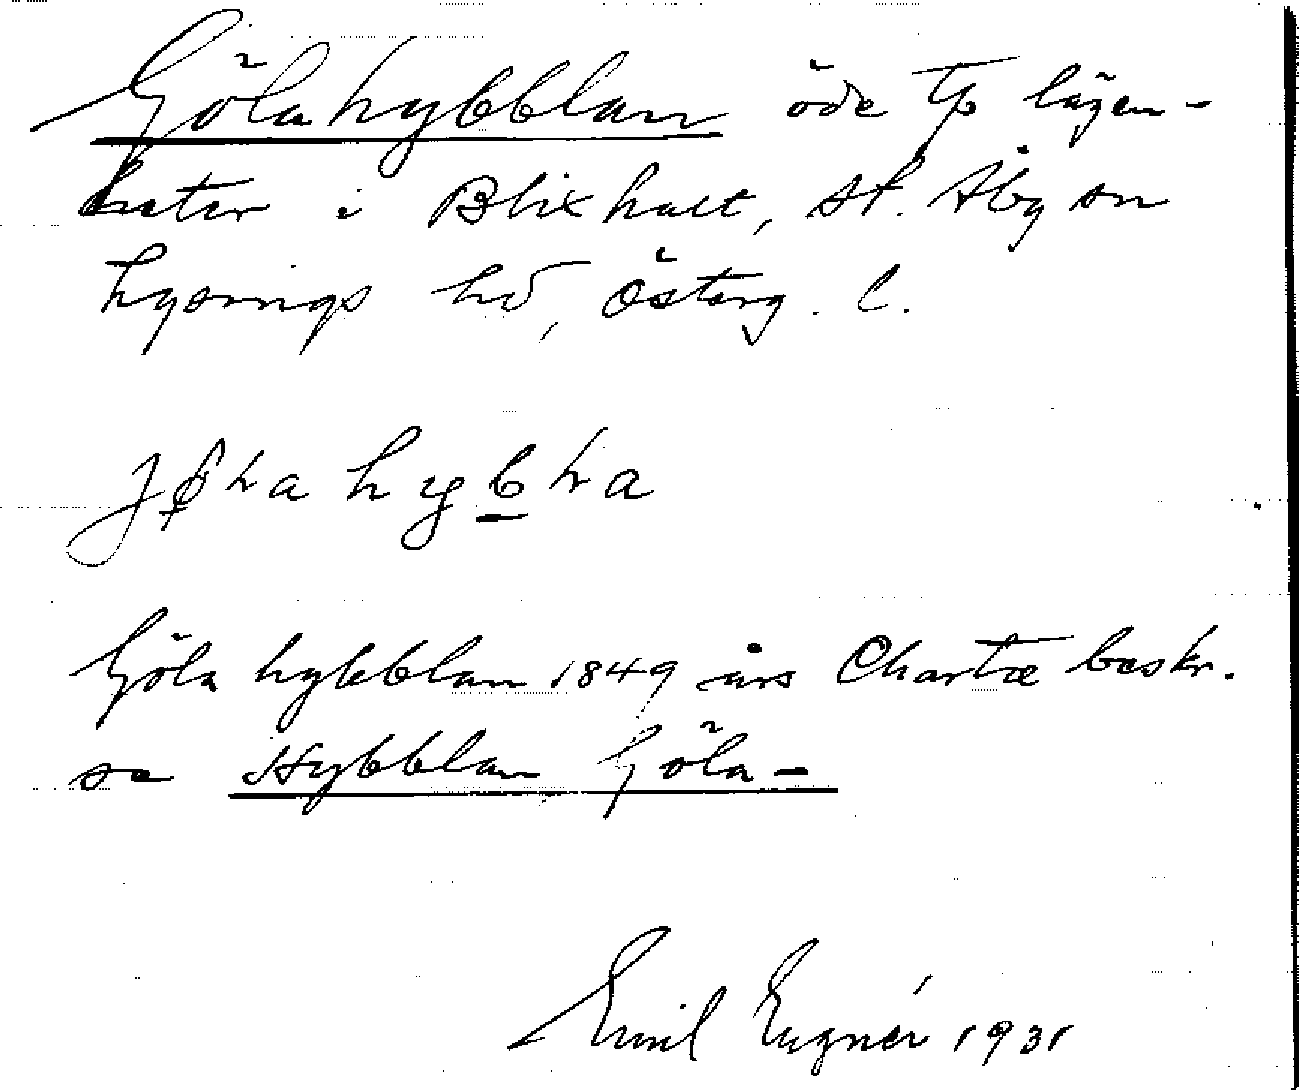 Göla hybblan öde tp lägen-
heter i Blixhult, St. Åby sn
Lysings hd, Österg. l.
Göla hybblan 1849 års Charta beskr.
se Hybblan Göla -
Emil Eugnér 1931